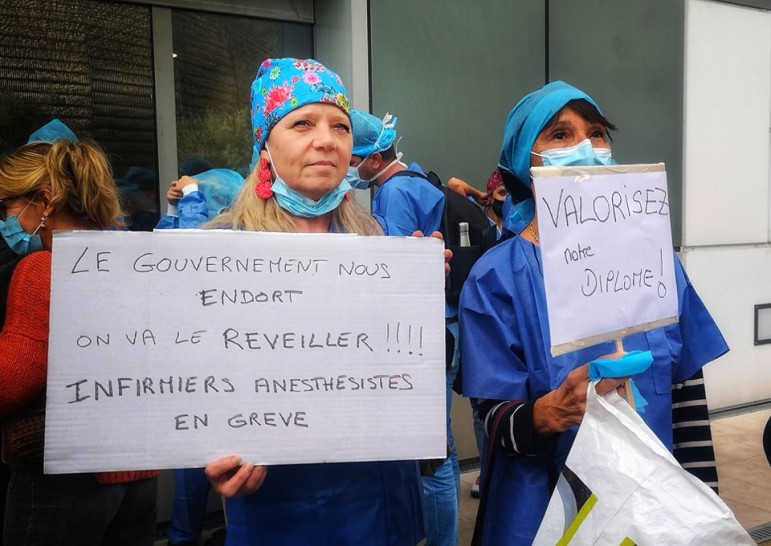 LE GOUVERNEMENT NOUS
ENDORT
ON VA LE REVEILLER !!!!
INFIRMIERS ANESTHESISTES
EN GREVE
VALORISEZ
notre
DIPLOME !